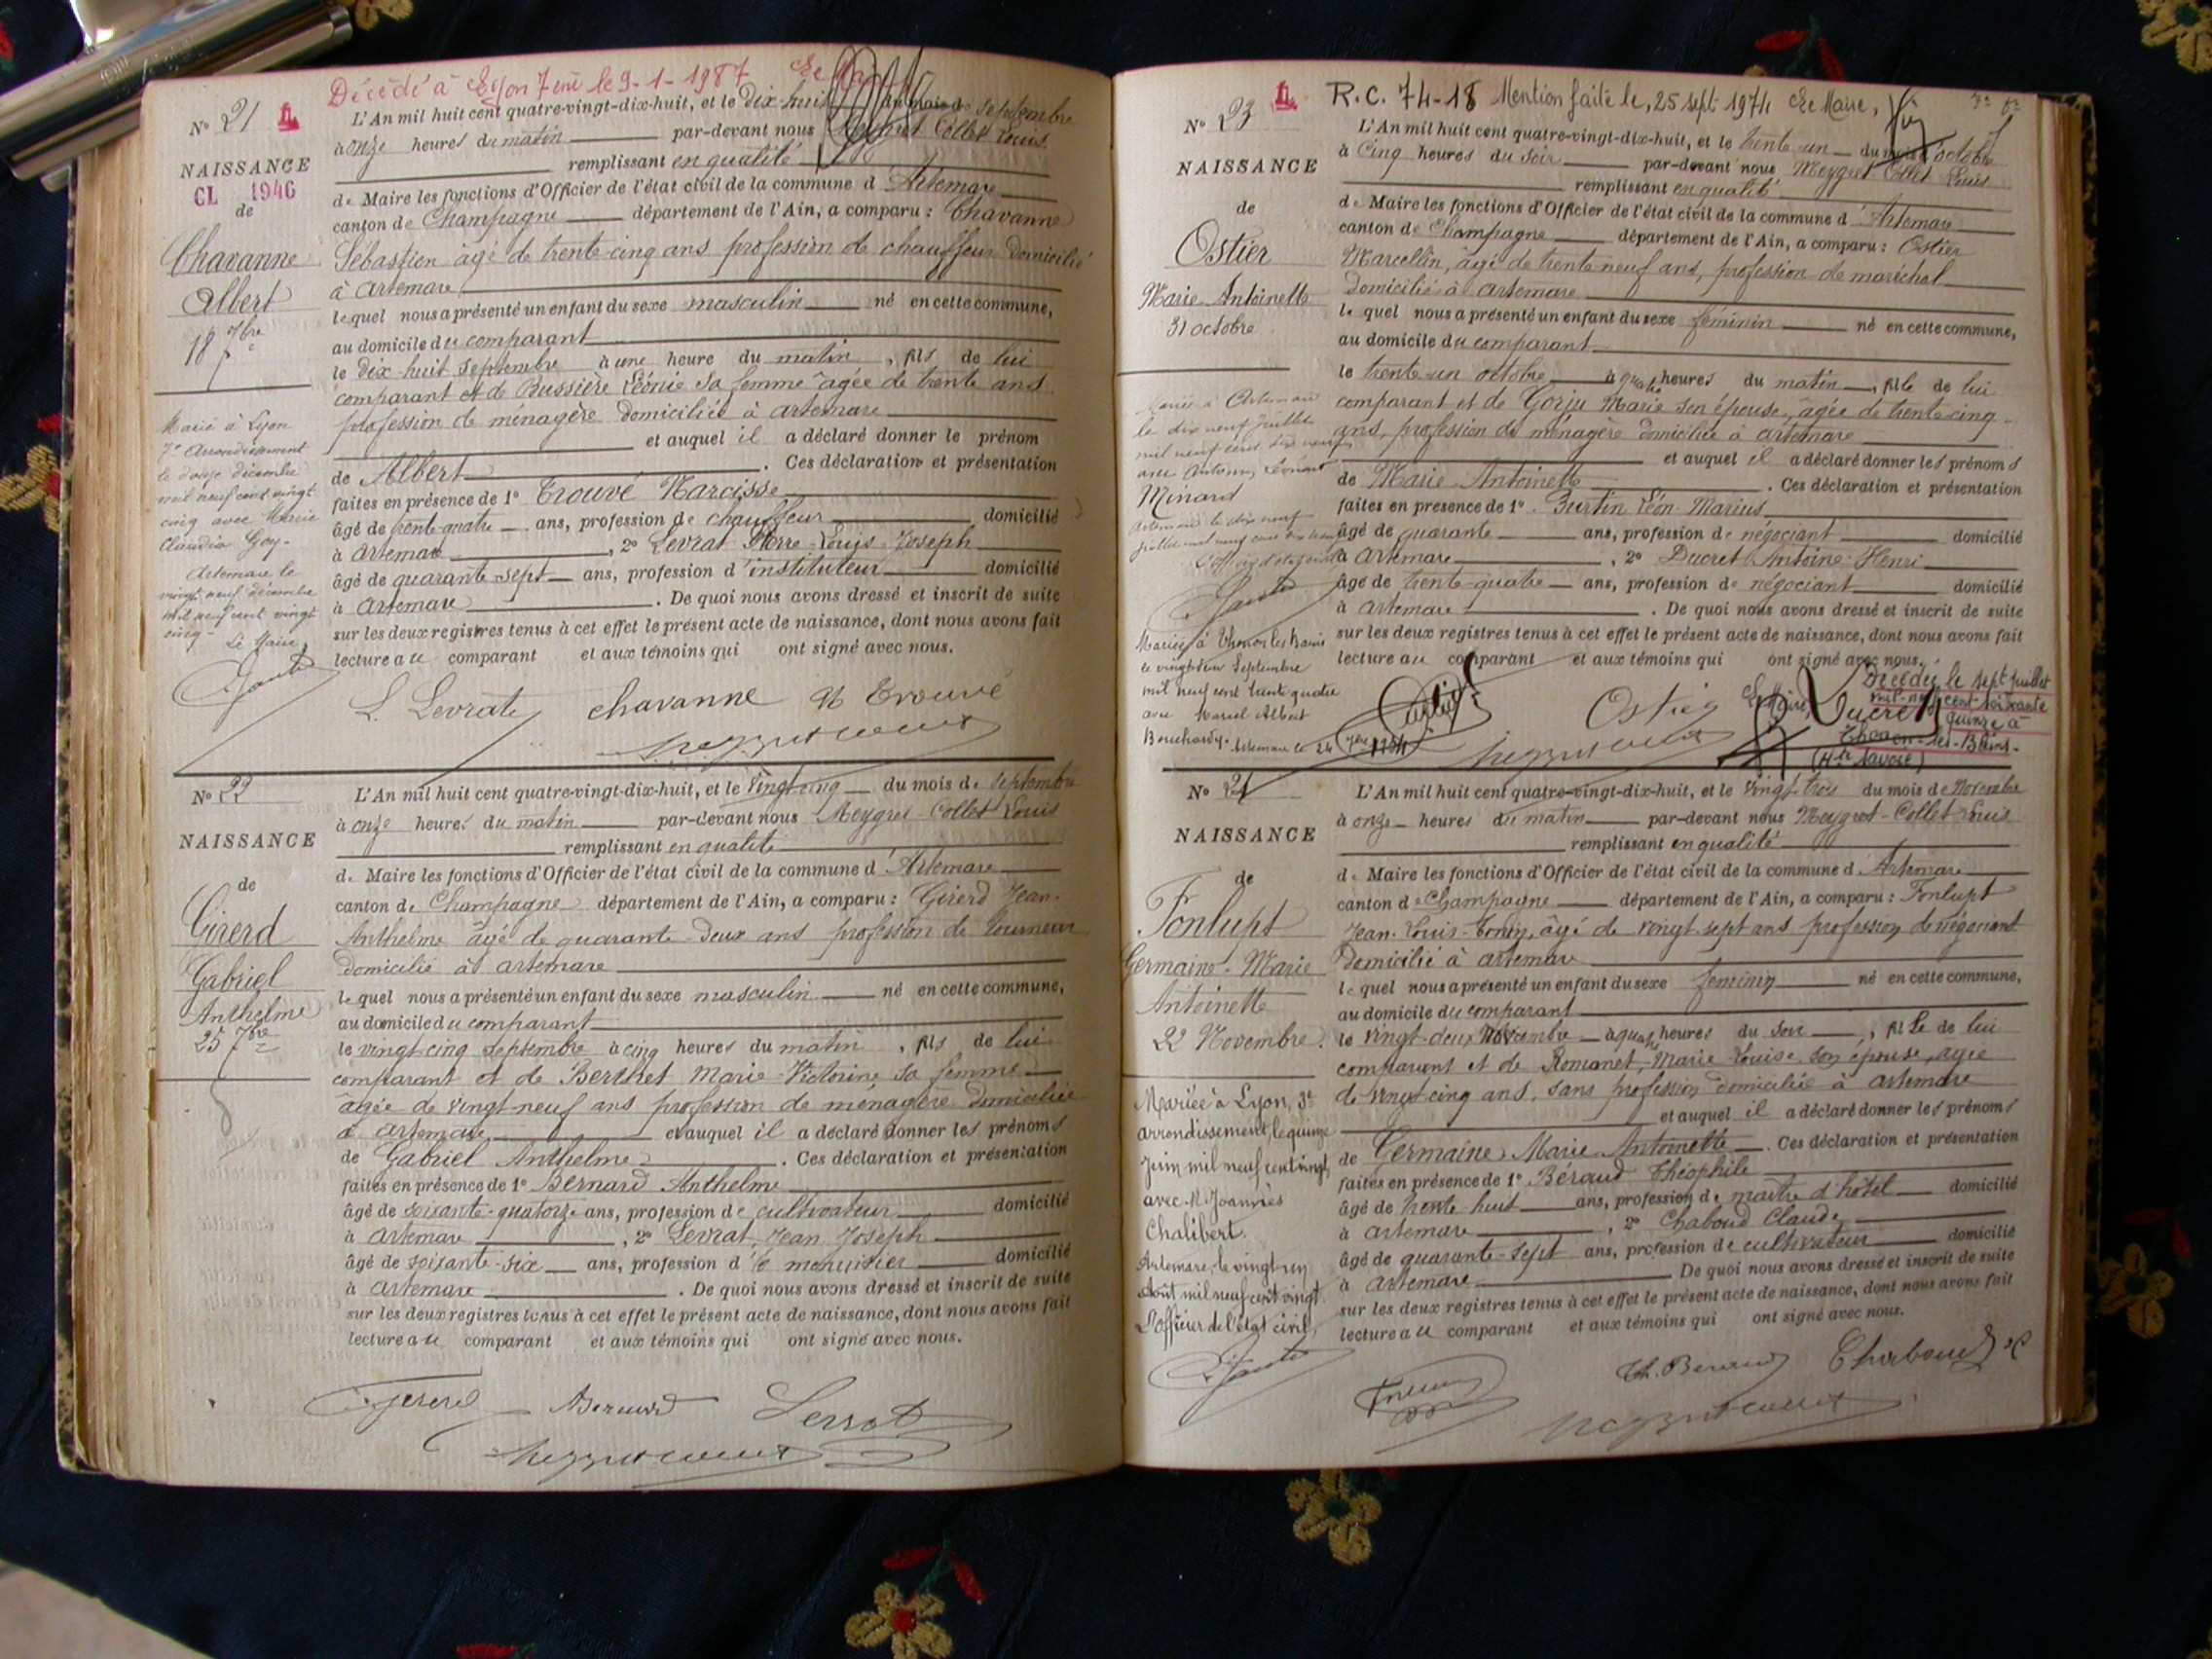 Décédé à Lyon 7eme le 9-1-1987 Le
N° 21
L'An mil huit cent quatre-vingt-dix-huit, et le dix-huit du mois de septembre
à onze heures du matin par-devant nous Meygret Collet Louis
NAISSANCE
remplissant en qualité
CL 1946
de Maire les fonctions d'Officier de l'état civil de la commune d'Artemare
de
canton de Champagne département de l'Ain, a comparu : Chavanne
Chavanne
Sébastien âgé de trente cinq ans profession de chauffeur domicilié
Albert
à Artemare
18 7bre
lequel nous a présenté un enfant du sexe masculin né en cette commune,
au domicile du comparant
le dix-huit septembre à une heure du matin, fils de lui
comparant et de Bussière Léonie sa femme âgée de trente ans
profession de ménagère domiciliée à Artemare
et auquel il a déclaré donner le prénom
de Albert. Ces déclaration et présentation
faites en présence de 1° Trouvé Narcisse
âgé de trente-quatre ans, profession de chauffeur domicilié
à Artemare, 2° Levrat Pierre Louis Joseph
âgé de quarante sept ans, profession d'instituteur domicilié
à Artemare. De quoi nous avons dressé et inscrit de suite
sur les deux registres tenus à cet effet le présent acte de naissance, dont nous avons fait
lecture au comparant et aux témoins qui ont signé avec nous.
Marié à Lyon
7e Arrondissement
le douze décembre
mil neuf cent vingt
cinq avec Marie
Claudia Goy.
Artemare le
vingt neuf décembre
mil neuf cent vingt
cinq
Le Maire,
L. Levrat chavanne N Trouvé
N° 22
L'An mil huit cent quatre-vingt-dix-huit, et le vingt-cinq du mois de septembre
à onze heures du matin par-devant nous Meygret-Collet Louis
NAISSANCE
remplissant en qualité
de Maire les fonctions d'Officier de l'état civil de la commune d'Artemare
de
canton de Champagne département de l'Ain, a comparu : Girerd Jean-
Girerd
Anthelme âgé de quarante-deux ans profession de tourneur
Gabriel
domicilié à Artemare
Anthelme
lequel nous a présenté un enfant du sexe masculin né en cette commune,
25 7bre
au domicile du comparant
le vingt-cinq septembre à cinq heures du matin, fils de lui
comparant et de Berthet Marie-Victorine sa femme
âgée de vingt-neuf ans profession de ménagère domiciliée
à Artemare et auquel il a déclaré donner les prénoms
de Gabriel Anthelme. Ces déclaration et présentation
faites en présence de 1° Bernard Anthelme
âgé de soixante-quatorze ans, profession de cultivateur domicilié
à Artemare, 2° Levrat Jean Joseph
âgé de soixante-six ans, profession de menuisier domicilié
à Artemare. De quoi nous avons dressé et inscrit de suite
sur les deux registres tenus à cet effet le présent acte de naissance, dont nous avons fait
lecture au comparant et aux témoins qui ont signé avec nous.
Girerd Bernard Levrat
R.C. 74-18 Mention faite le, 25 sept 1974 Le Maire,
N° 23
L'An mil huit cent quatre-vingt-dix-huit, et le trente-un du mois d'octobre
à cinq heures du soir par-devant nous Meygret Collet Louis
NAISSANCE
remplissant en qualité
de Maire les fonctions d'Officier de l'état civil de la commune d'Artemare
de
canton de Champagne département de l'Ain, a comparu : Ostier
Ostier
Marcellin, âgé de trente neuf ans, profession de maréchal
Marie-Antoinette
domicilié à Artemare
31 octobre
lequel nous a présenté un enfant du sexe féminin né en cette commune,
au domicile du comparant
le trente-un octobre à quatre heures du matin, fille de lui
comparant et de Gorju Marie son épouse, âgée de trente-cinq
ans, profession de ménagère domiciliée à Artemare
et auquel il a déclaré donner les prénoms
de Marie-Antoinette. Ces déclaration et présentation
faites en présence de 1° Burtin Léon-Marius
âgé de quarante ans, profession de négociant domicilié
à Artemare, 2° Ducret Antoine-Henri
âgé de trente-quatre ans, profession de négociant domicilié
à Artemare. De quoi nous avons dressé et inscrit de suite
sur les deux registres tenus à cet effet le présent acte de naissance, dont nous avons fait
lecture au comparant et aux témoins qui ont signé avec nous.
Mariée à Artemare
le dix neuf juillet
mil neuf cent dix neuf
avec Antonin, Léonard
Minard
Artemare le dix neuf
juillet mil neuf cent dix neuf
L'officier d'état civil
Mariée à Thonon les Bains
le vingt deux Septembre
mil neuf cent trente quatre
avec Marcel Albert
Bouchardy. Artemare le 24 7bre 1934
Le Maire,
Ostier
Ducret
Décédée le sept juillet
mil neuf cent soixante
quinze à
Thonon-les-Bains-
(Hte Savoie)
N° 24
L'An mil huit cent quatre-vingt-dix-huit, et le vingt-trois du mois de Novembre
à onze heures du matin par-devant nous Meygret-Collet Louis
NAISSANCE
remplissant en qualité
de Maire les fonctions d'Officier de l'état civil de la commune d'Artemare
de
canton de Champagne département de l'Ain, a comparu : Fonlupt
Fonlupt
Jean-Louis-Tony, âgé de vingt sept ans profession de négociant
Germaine-Marie
domicilié à Artemare
Antoinette
lequel nous a présenté un enfant du sexe féminin né en cette commune,
22 Novembre.
au domicile du comparant
le vingt-deux Novembre à quatre heures du soir, fille de lui
comparant et de Romanet, Marie-Louise son épouse, âgée
de vingt-cinq ans, sans profession domiciliée à Artemare
et auquel il a déclaré donner les prénoms
de Germaine Marie Antoinette. Ces déclaration et présentation
faites en présence de 1° Béraud Théophile
âgé de trente huit ans, profession de maître d'hôtel domicilié
à Artemare, 2° Chaboud Claude
âgé de quarante-sept ans, profession de cultivateur domicilié
à Artemare De quoi nous avons dressé et inscrit de suite
sur les deux registres tenus à cet effet le présent acte de naissance, dont nous avons fait
lecture au comparant et aux témoins qui ont signé avec nous.
Mariée à Lyon, 3e
arrondissement, le quinze
Juin mil neuf cent vingt
avec M Joannès
Chalibert.
Artemare, le vingt un
Août mil neuf cent vingt.
L'Officier de l'état civil,
Th. Beraud Chaboud